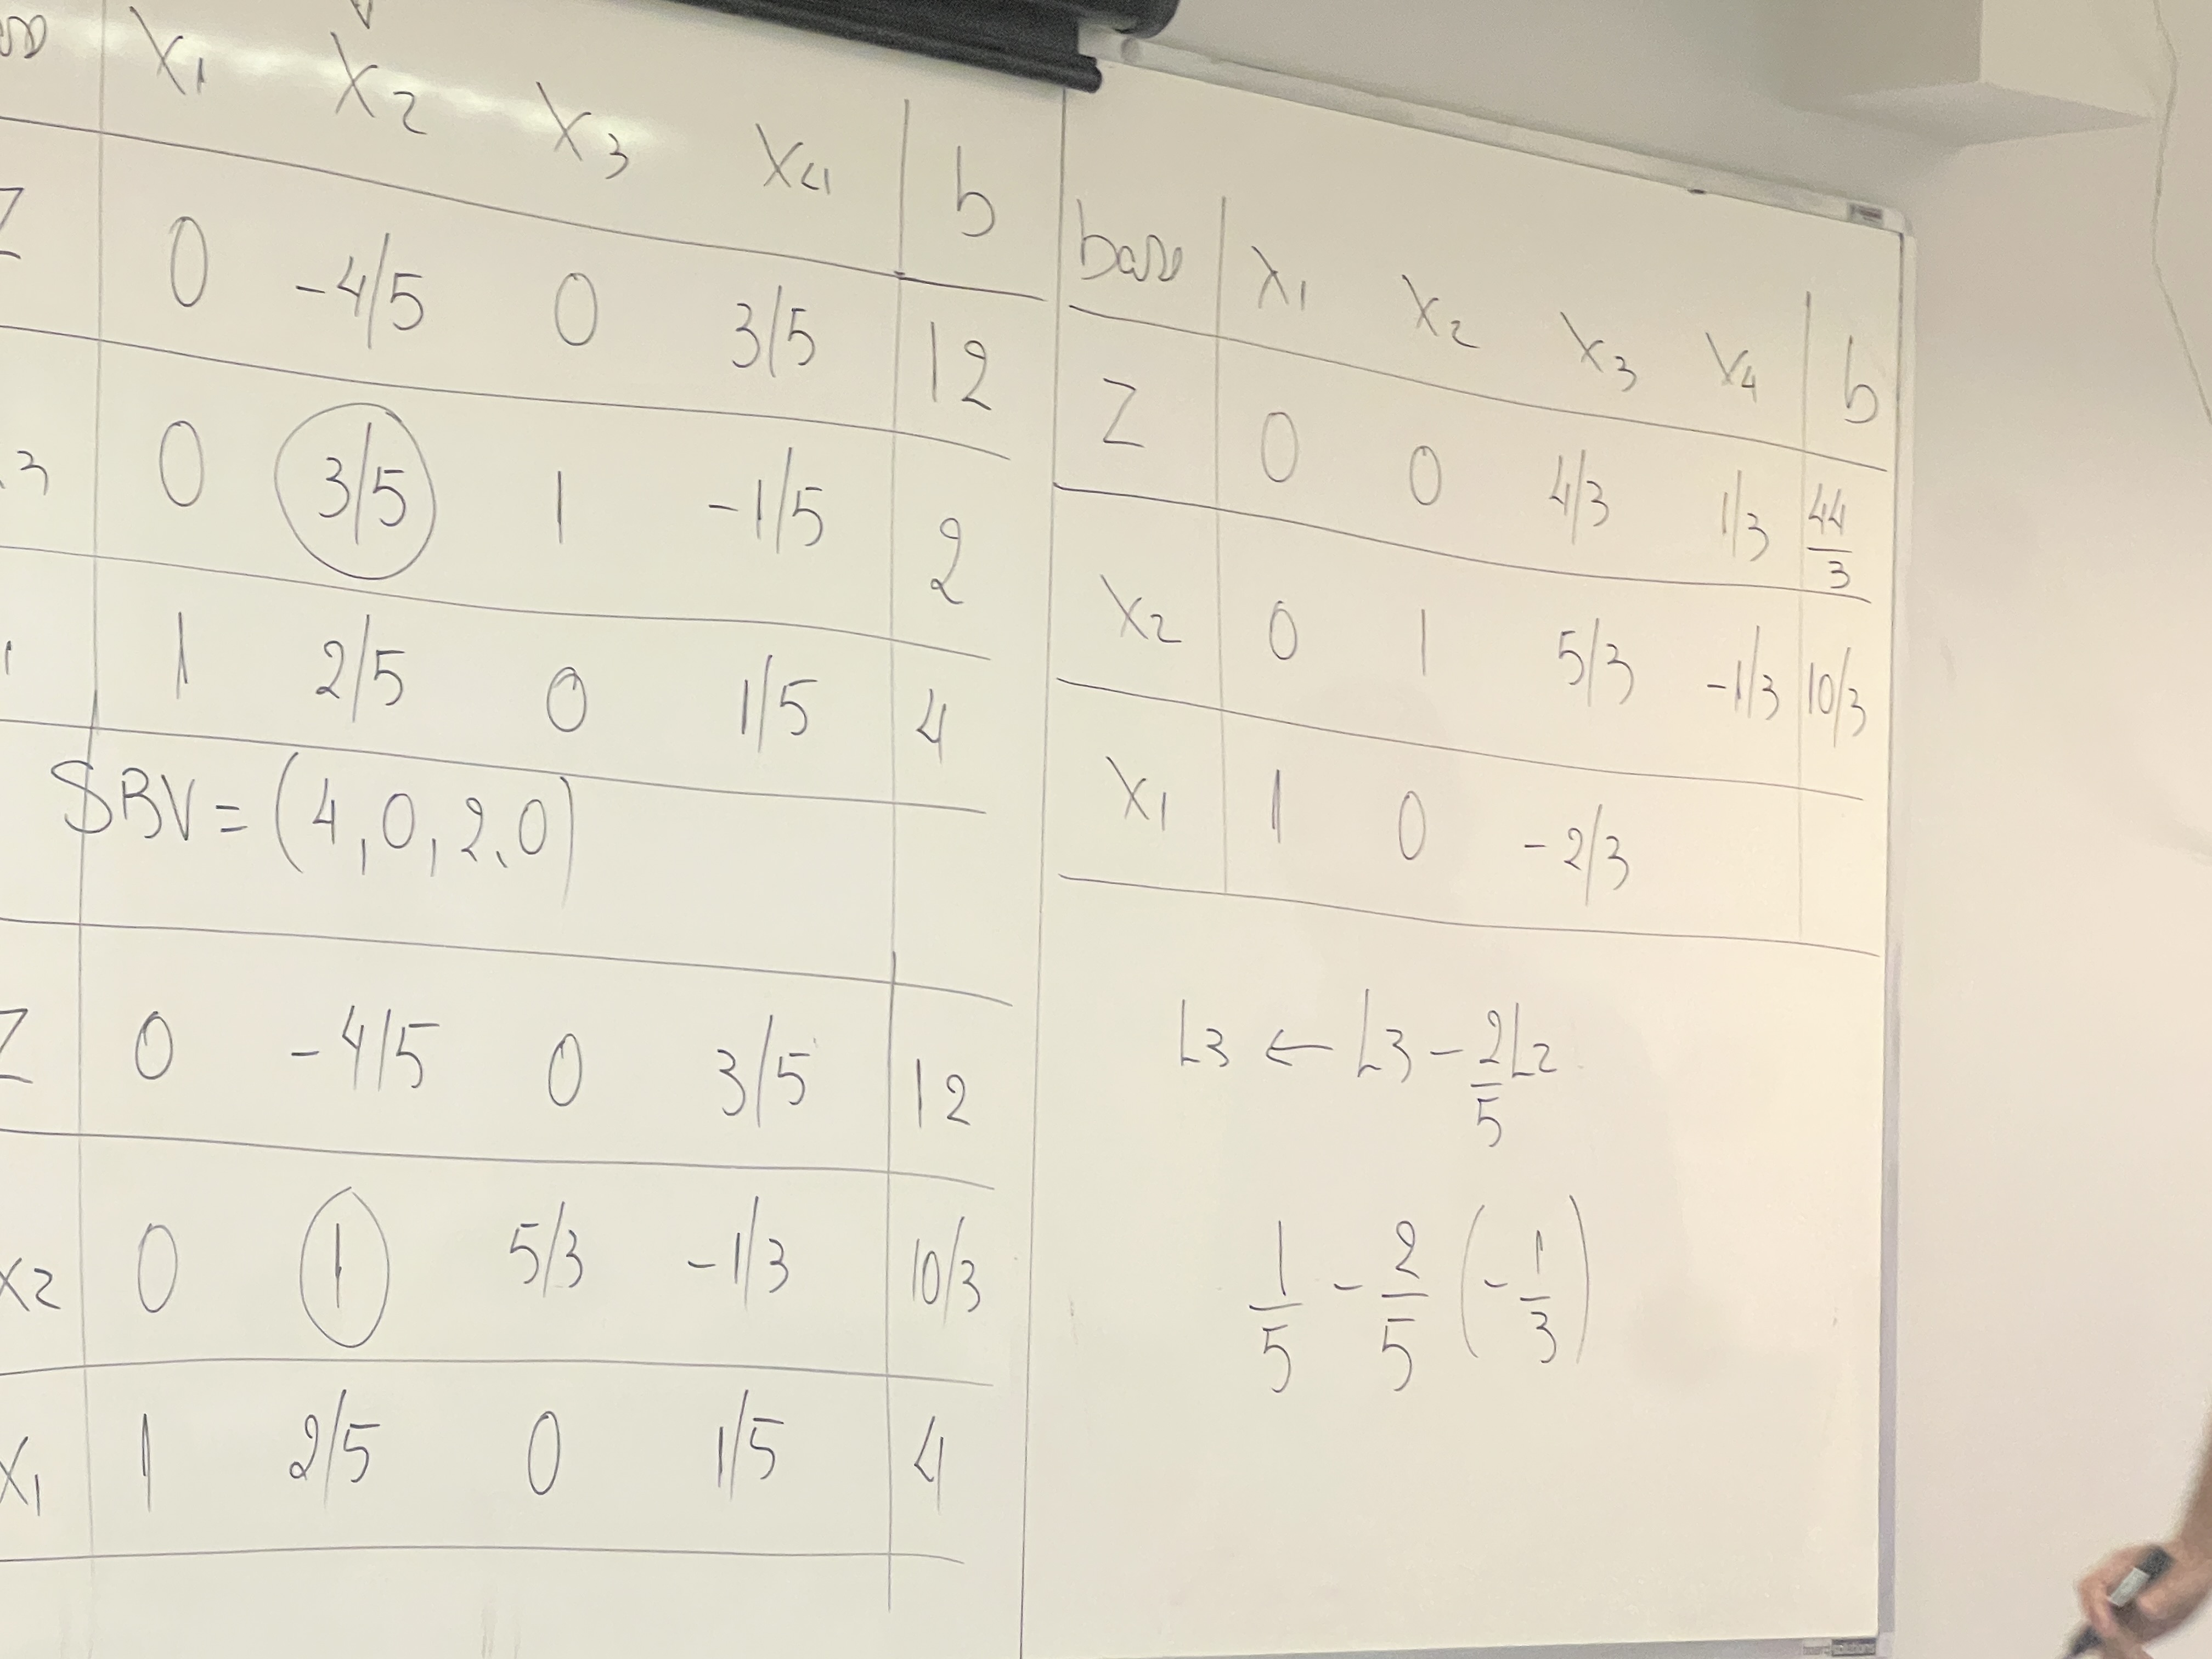 X1 X2 X3 X4 b
Z 0 -4/5 0 3/5 12
3 0 3/5 1 -1/5 2
1 1 2/5 0 1/5 4
SBV = (4, 0, 2, 0)
Z 0 -4/5 0 3/5 12
X2 0 1 5/3 -1/3 10/3
X1 1 2/5 0 1/5 4
base X1 X2 X3 X4 b
Z 0 0 4/3 1/3 44/3
X2 0 1 5/3 -1/3 10/3
X1 1 0 -2/3
L3 ← L3 - 2/5 L2
1/5 - 2/5 (-1/3)